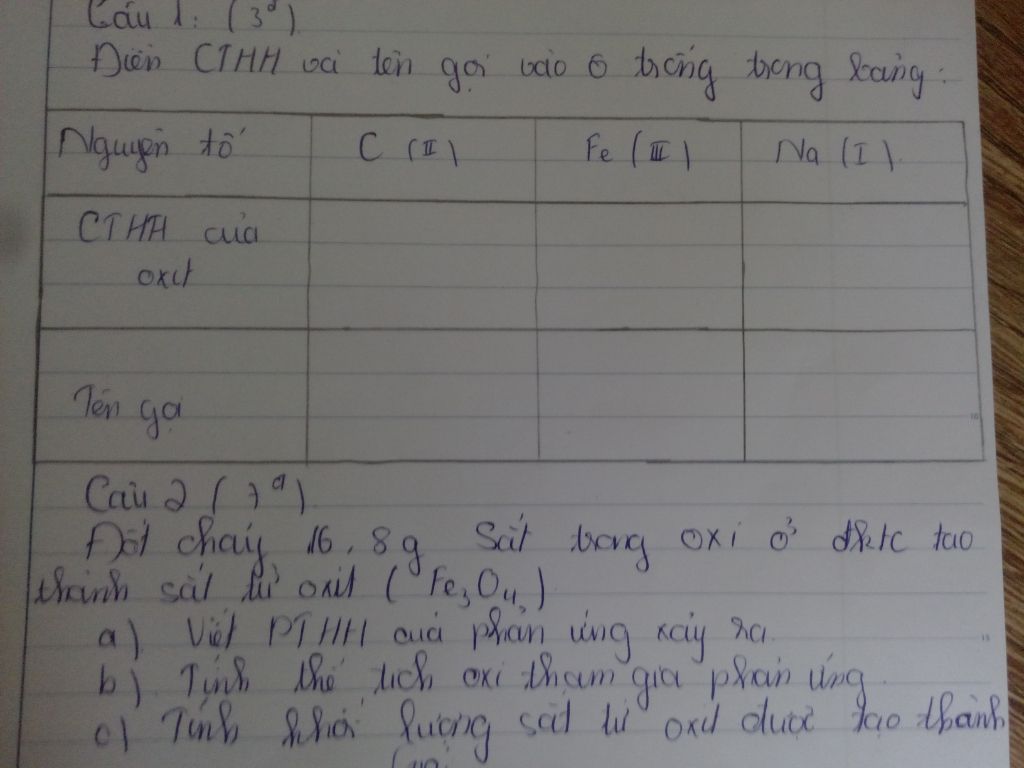 Câu 1: (3đ)
Điền CTHH và tên gọi vào ô trống trong bảng:
Nguyên tố C (II) Fe (III) Na (I)
CTHH của
oxit
Tên gọi
Câu 2 (7đ)
Đốt cháy 16,8g Sắt trong oxi ở đktc tạo
thành sắt từ oxit (Fe3O4)
a) Viết PTHH của phản ứng xảy ra.
b) Tính thể tích oxi tham gia phản ứng.
c) Tính khối lượng sắt từ oxit được tạo thành